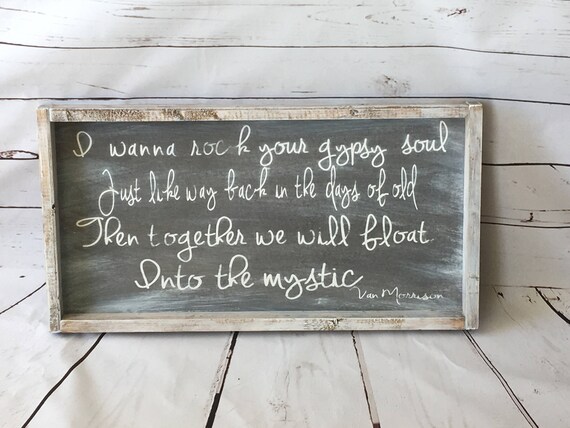 I wanna rock your gypsy soul
Just like way back in the days of old
Then together we will float
Into the mystic
Van Morrison